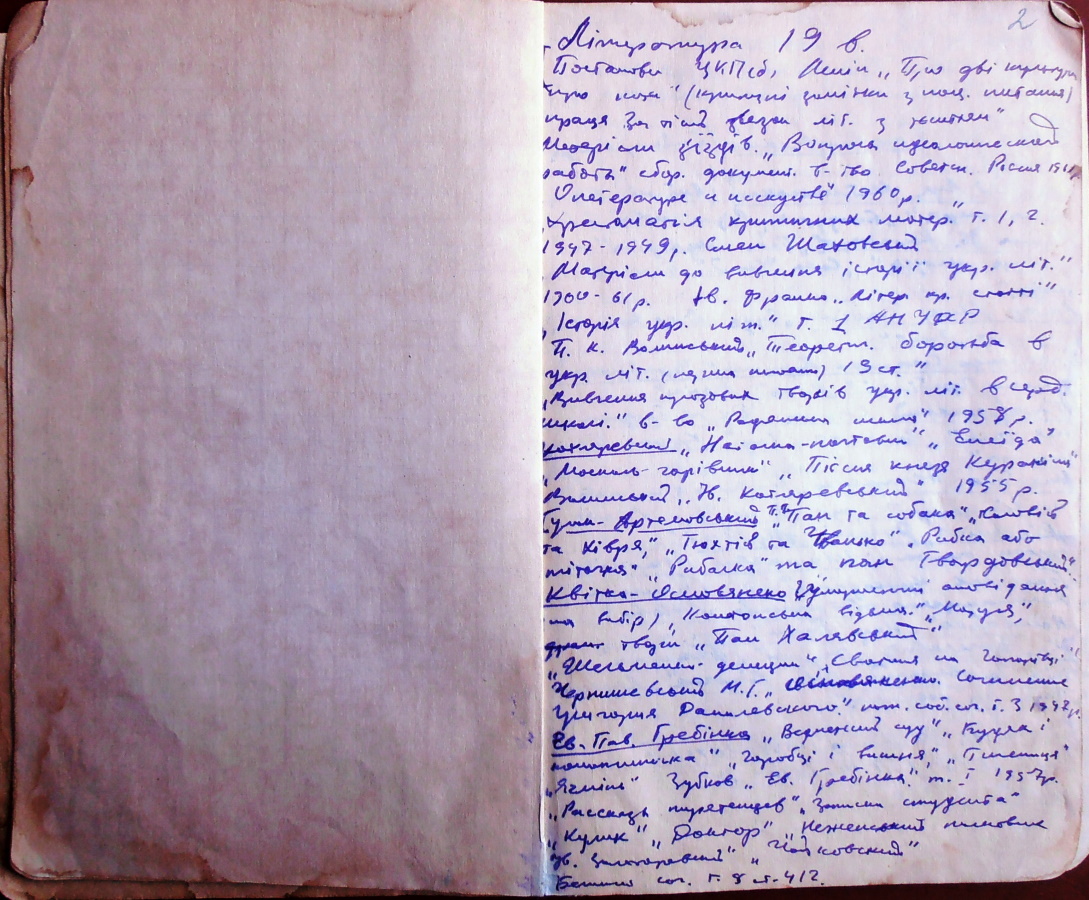 2
Література 19 в.
Постанови ЦКП(б), Ленін „Про дві культури
(критичні замітки з нац. питання)
праця За тісний звязок літ. з життям"
Матеріали зїздів. „Вопросы идеологической
работы" сбор. документ. в-тво Советск. Россия
О литературе и искусстве" 1960р. „
Хрестоматія критичних матер. т. 1, 2.
1947-1949р. Шаховський
„Матеріали до вивчення історії укр. літ."
1900-61р. Ів. Франко „Літер. кр. статті"
„Історія укр. літ." т. 1 АН УРСР
П. К. Волинський „Теорет. боротьба в
укр. літ. (перша половина) 19 ст."
„Вивчення прозових творів укр. літ. в серед.
школі." в-во „Радянська школа" 1957р.
Котляревський „Наталка-полтавка" „Енеїда"
„Москаль-чарівник" „Пісня князя Куракіна"
Волинський „Ів. Котляревський" 1955р.
Гулак-Артемовський П.П. „Пан та собака" „Солопій
та Хівря," „Тюхтій та Чванько". Рибка або
„Рибалка" та пан Твардовський".
Квітка-Основяненко (Гумористичні оповідання
на вибір), „Конотопська відьма." „Маруся,"
драм. твори „Пан Халявський"
„Шельменко-денщик" „Сватання на Гончарівці"
Чернишевський М.Г. „ Сочинение
Григория Данилевского." пол. соб. соч. т. 3 1947р.
Єв. Пав. Гребінка „Ведмежий суд" „Будяк і
конопляночка" „Горобці і вишня," „Пшениця"
„Ячмінь" Зубков „Єв. Гребінка." т. I 1957р.
„Рассказы пирятинцев" „Записки студента"
„Кулик" „Доктор" „Нежинский полковник
Ів. Золотаренко" „Чайковский"
соч. т. 8 ст. 412.